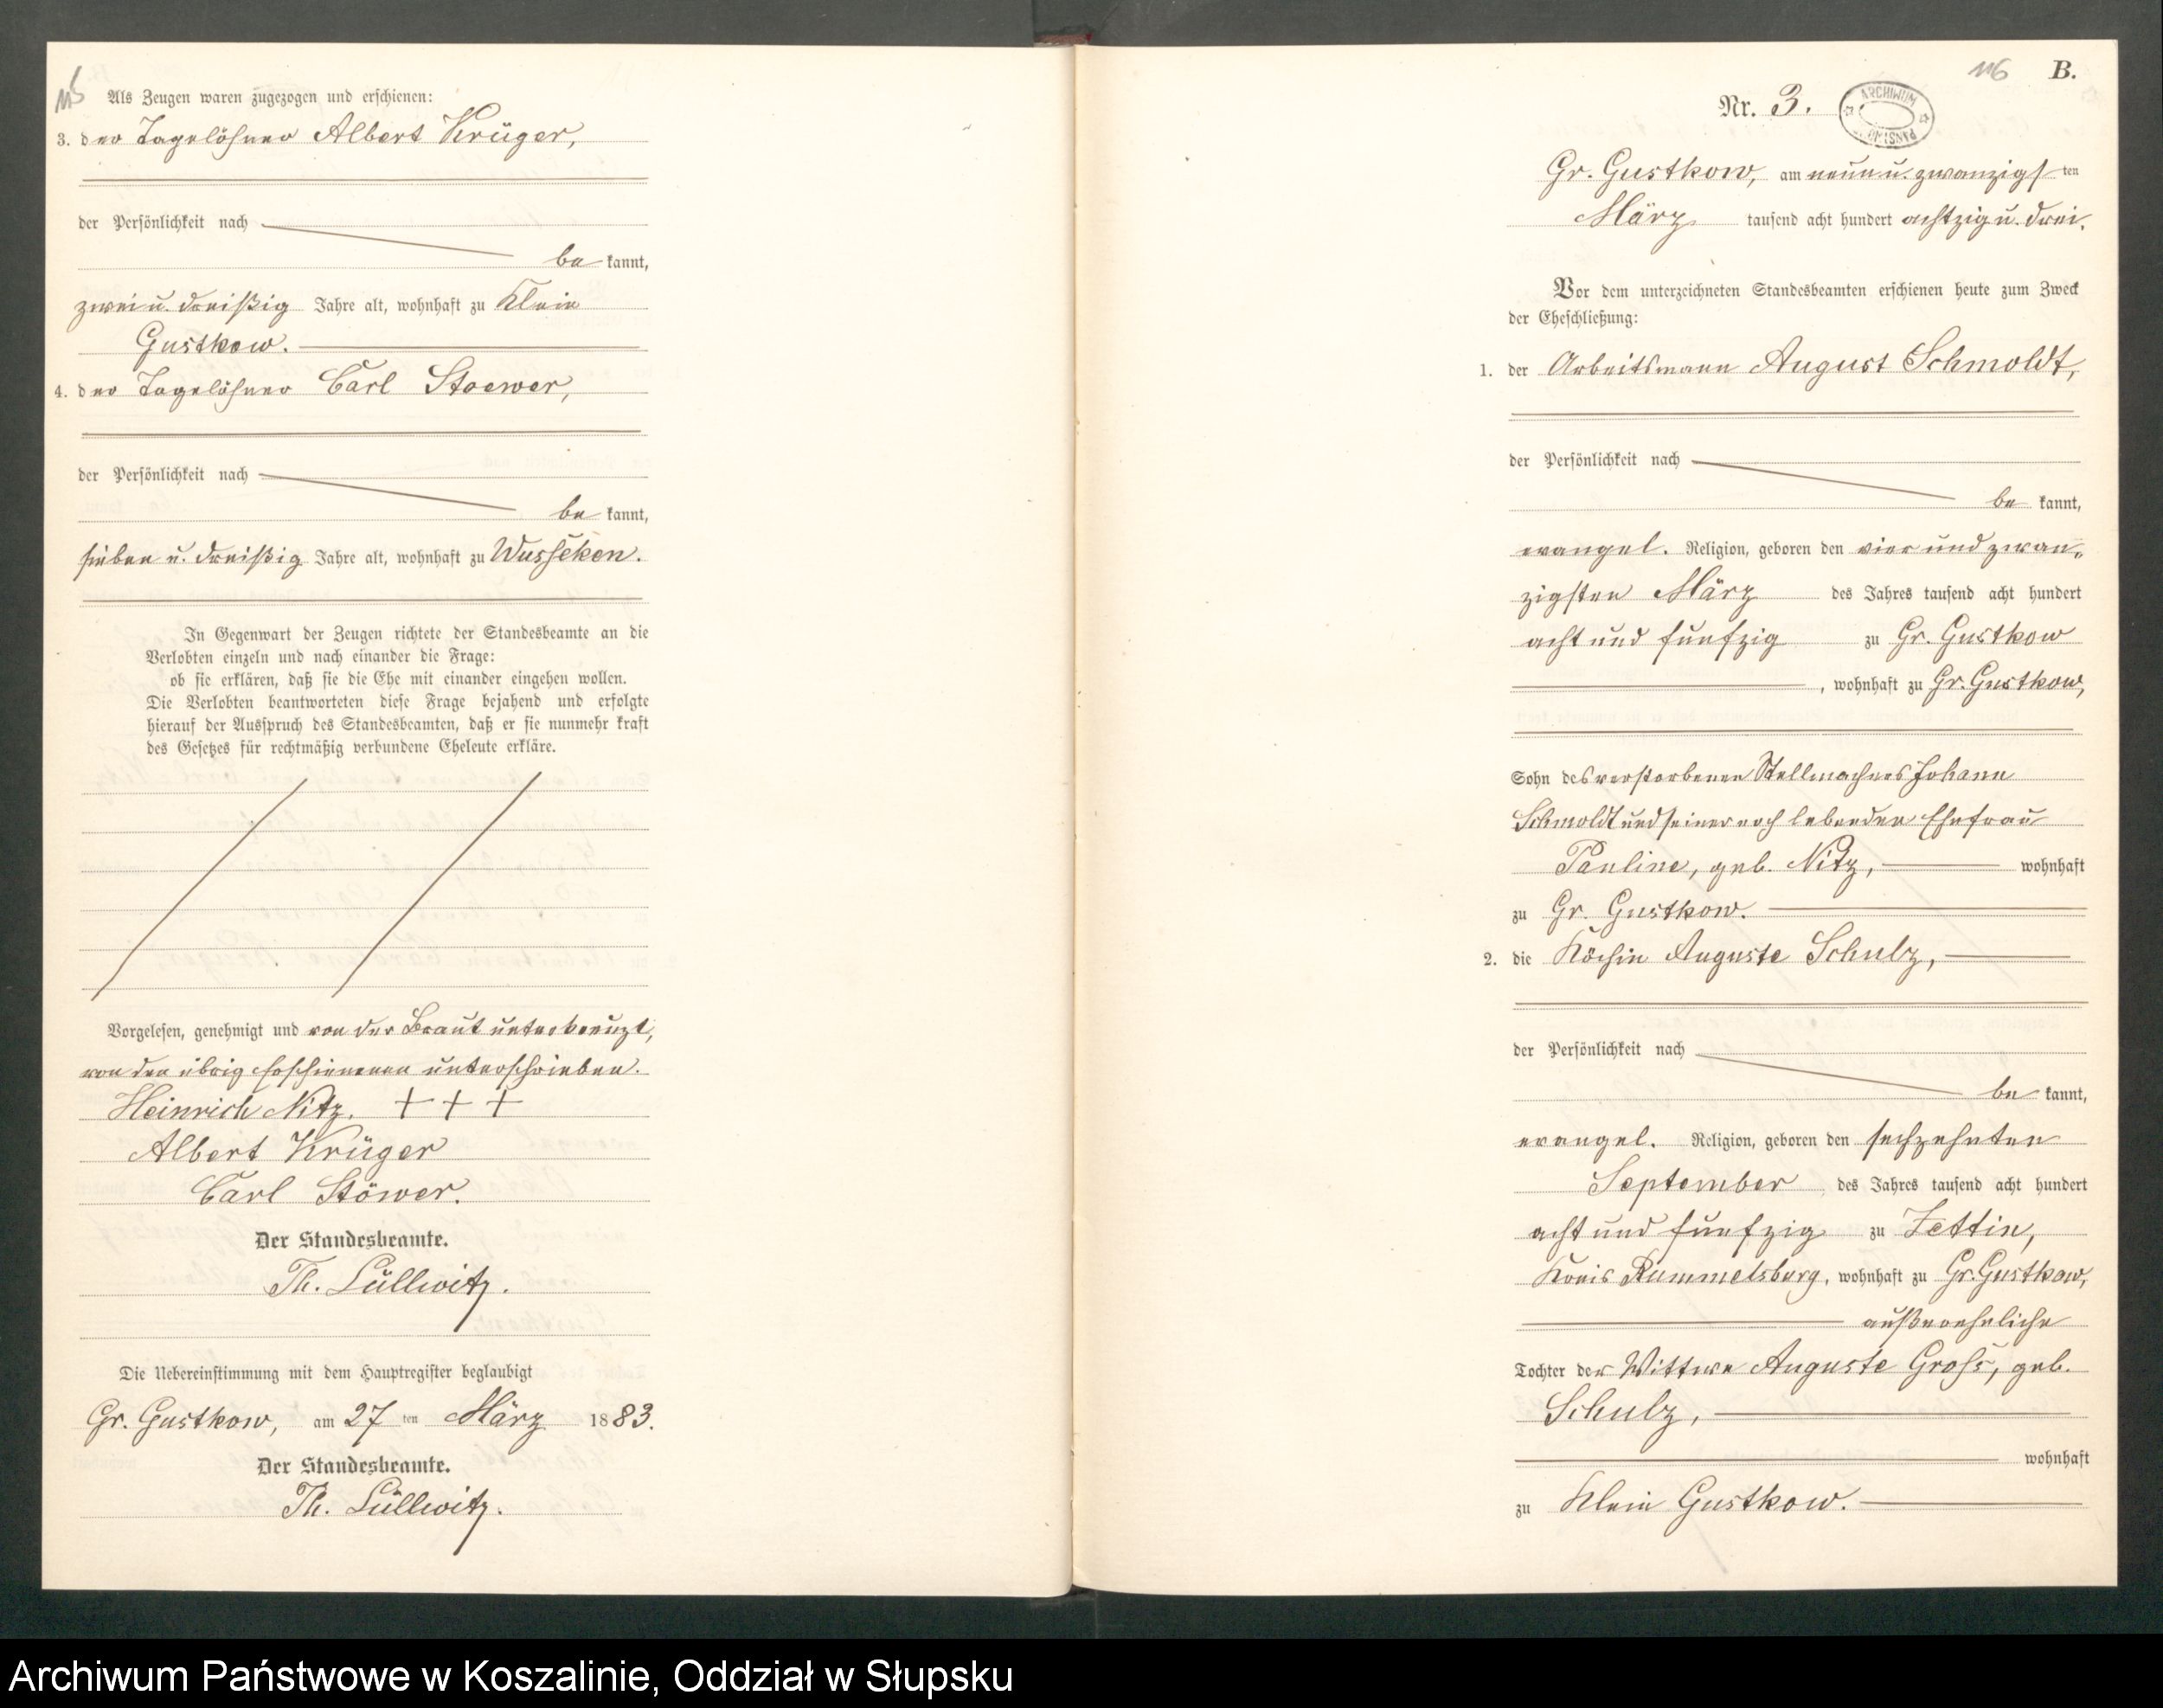 115
Als Zeugen waren zugezogen und erschienen:
3. der Tagelöhner Albert Krüger,
der Persönlichkeit nach
be kannt,
zwei u. dreißig Jahre alt, wohnhaft zu Klein
Gustkow.
4. der Tagelöhner Carl Stoewer,
der Persönlichkeit nach
be kannt,
sieben u. dreißig Jahre alt, wohnhaft zu Wusseken.
In Gegenwart der Zeugen richtete der Standesbeamte an die
Verlobten einzeln und nach einander die Frage:
ob sie erklären, daß sie die Ehe mit einander eingehen wollen.
Die Verlobten beantworteten diese Frage bejahend und erfolgte
hierauf der Ausspruch des Standesbeamten, daß er sie nunmehr kraft
des Gesetzes für rechtmäßig verbundene Eheleute erkläre.
Vorgelesen, genehmigt und von der Braut unterkreuzt,
von den übrig Erschienenen unterschrieben.
Heinrich Nitz. + + +
Albert Krüger
Carl Stöwer.
Der Standesbeamte.
Th. Lüllwitz.
Die Uebereinstimmung mit dem Hauptregister beglaubigt
Gr. Gustkow, am 27 ten März 1883.
Der Standesbeamte.
Th. Lüllwitz.
116 B.
Nr. 3.
ARCHIWUM
Gr. Gustkow, am neun u. zwanzigs ten
März tausend acht hundert achtzig u. drei.
Vor dem unterzeichneten Standesbeamten erschienen heute zum Zweck
der Eheschließung:
1. der Arbeitsmann August Schmoldt,
der Persönlichkeit nach
be kannt,
evangel. Religion, geboren den vier und zwan-
zigsten März des Jahres tausend acht hundert
acht und funfzig zu Gr. Gustkow
, wohnhaft zu Gr. Gustkow,
Sohn des verstorbenen Stellmachers Johann
Schmoldt und seiner noch lebenden Ehefrau
Pauline, geb. Nitz, wohnhaft
zu Gr. Gustkow.
2. die Köchin Auguste Schulz,
der Persönlichkeit nach
be kannt,
evangel. Religion, geboren den sechzehnten
September des Jahres tausend acht hundert
acht und funfzig zu Zettin,
Kreis Rummelsburg, wohnhaft zu Gr. Gustkow,
außereheliche
Tochter der Wittwe Auguste Groß, geb.
Schulz,
wohnhaft
zu Klein Gustkow.
Archiwum Państwowe w Koszalinie, Oddział w Słupsku